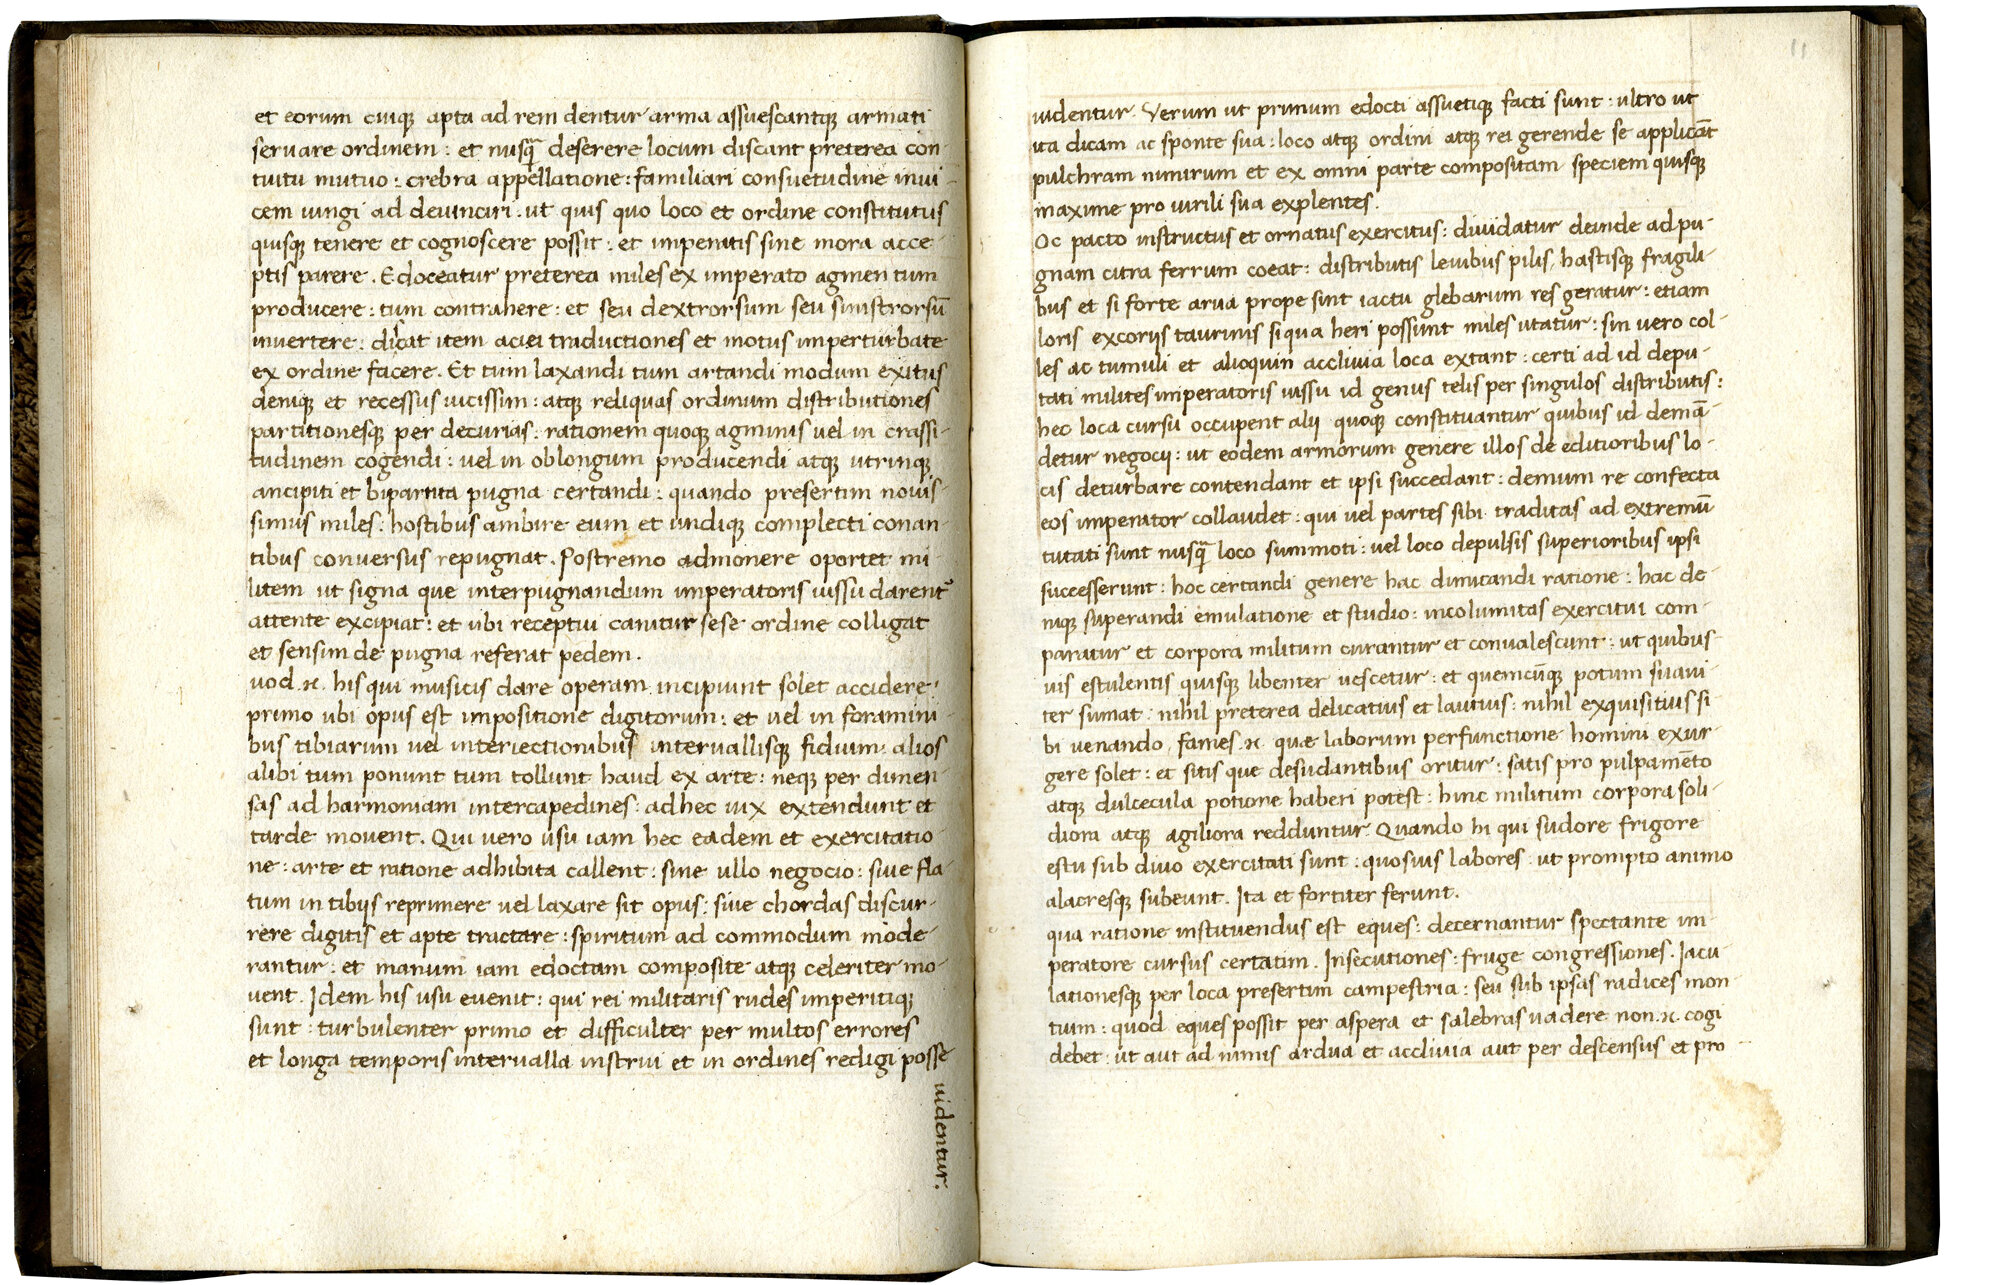 et eorum cuiqꝫ apta ad rem dentur arma assuescantqꝫ armati
seruare ordinem : et nusq̃ deserere locum discant preterea con-
tuitu mutuo : crebra appellatione : familiari consuetudine inui-
cem iungi ad deuinciri . ut quis quo loco et ordine constitutus
quisqꝫ tenere et cognoscere possit : et imperatis sine mora acce-
ptis parere . Edoceatur preterea miles ex imperato agmen tum
producere : tum contrahere : et seu dextrorsum seu sinistrorsū
inuertere : discat item aciei traductiones et motus imperturbate
ex ordine facere . Et tum laxandi tum artandi modum exitus
deniqꝫ et recessus uicissim : atqꝫ reliquas ordinum distributiones
partitionesqꝫ per decurias : rationem quoqꝫ agminis uel in crassi-
tudinem cogendi : uel in oblongum producendi atqꝫ utrinqꝫ
ancipiti et bipartita pugna certandi : quando presertim nouis-
simus miles : hostibus ambire eum et undiqꝫ complecti conan-
tibus conuersus repugnat . Postremo admonere oportet mi-
litem ut signa que interpugnandum imperatoris iussu darent᷑
attente excipiat : et ubi receptui canitur sese ordine colligat
et sensim de pugna referat pedem .
uod .n. his qui musicis dare operam incipiunt solet accidere :
primo ubi opus est impositione digitorum : et uel in foramini-
bus tibiarum uel interiectionibus interuallisqꝫ fidium : alios
alibi tum ponunt tum tollunt haud ex arte : neqꝫ per dimen-
sas ad harmoniam intercapedines : adhec uix extendunt et
tarde mouent . Qui vero usu iam hec eadem et exercitatio-
ne : arte et ratione adhibita callent : sine ullo negocio : siue fla-
tum in tibijs reprimere uel laxare sit opus : siue chordas discur-
rere digitis et apte tractare : spiritum ad commodum mode-
rantur : et manum iam edoctam composite atqꝫ celeriter mo-
uent . Idem his usu euenit : qui rei militaris rudes imperitiqꝫ
sunt : turbulenter primo et difficulter per multos errores
et longa temporis interualla instrui et in ordines redigi posse
uidentur .
11
uidentur . Verum ut primum edocti assuetiqꝫ facti sunt : ultro ut
ita dicam ac sponte sua : loco atqꝫ ordini atqꝫ rei gerende se applicāt
pulchram nimirum et ex omni parte compositam speciem quisqꝫ
maxime pro uirili sua explentes .
Oc pacto instructus et ornatus exercitus : diuidatur deinde ad pu-
gnam citra ferrum coeat : distributis leuibus pilis , hastisqꝫ fragili-
bus et si forte arua prope sint iactu glebarum res geratur : etiam
loris excorijs taurinis siqua heri possunt miles utatur : sin uero col-
les ac tumuli et alioquin accliuia loca extant : certi ad id depu-
tati milites imperatoris iussu id genus telis per singulos distributis :
hec loca cursu occupent alij quoqꝫ constituantur quibus id demā-
detur negocij : ut eodem armorum genere illos de editioribus lo-
cis deturbare contendant et ipsi succedant : demum re confecta
eos imperator collaudet : qui uel partes sibi traditas ad extremū
tutati sunt nusq̃ loco summoti : uel loco depulsis superioribus ipsi
successerunt : hoc certandi genere hac dimicandi ratione : hac de-
niqꝫ superandi emulatione et studio : incolumitas exercitui com-
paratur et corpora militum curantur et conualescunt : ut quibus-
uis esculentis quisqꝫ libenter uescetur : et quemcūqꝫ potum suaui-
ter sumat : nihil preterea delicatius et lautius : nihil exquisitius si-
bi uenando , fames .n. quae laborum perfunctione homini exur-
gere solet : et sitis que desudantibus oritur : satis pro pulpamēto
atqꝫ dulcecula potione haberi potest : hinc militum corpora soli-
diora atqꝫ agiliora redduntur . Quando hi qui sudore frigore
estu sub diuo exercitati sunt : quosuis labores : ut prompto animo
alacresqꝫ subeunt . Ita et fortiter ferunt .
qua ratione instituendus est eques : decernantur spectante im-
peratore cursus certatim . Insecutiones : fruge congressiones . Iacu-
lationesqꝫ per loca presertim campestria : seu sub ipsas radices mon-
tium : quod eques possit per aspera et salebras uadere non .n. cogi
debet : ut aut ad nimis ardua et accliuia aut per descensus et pro-